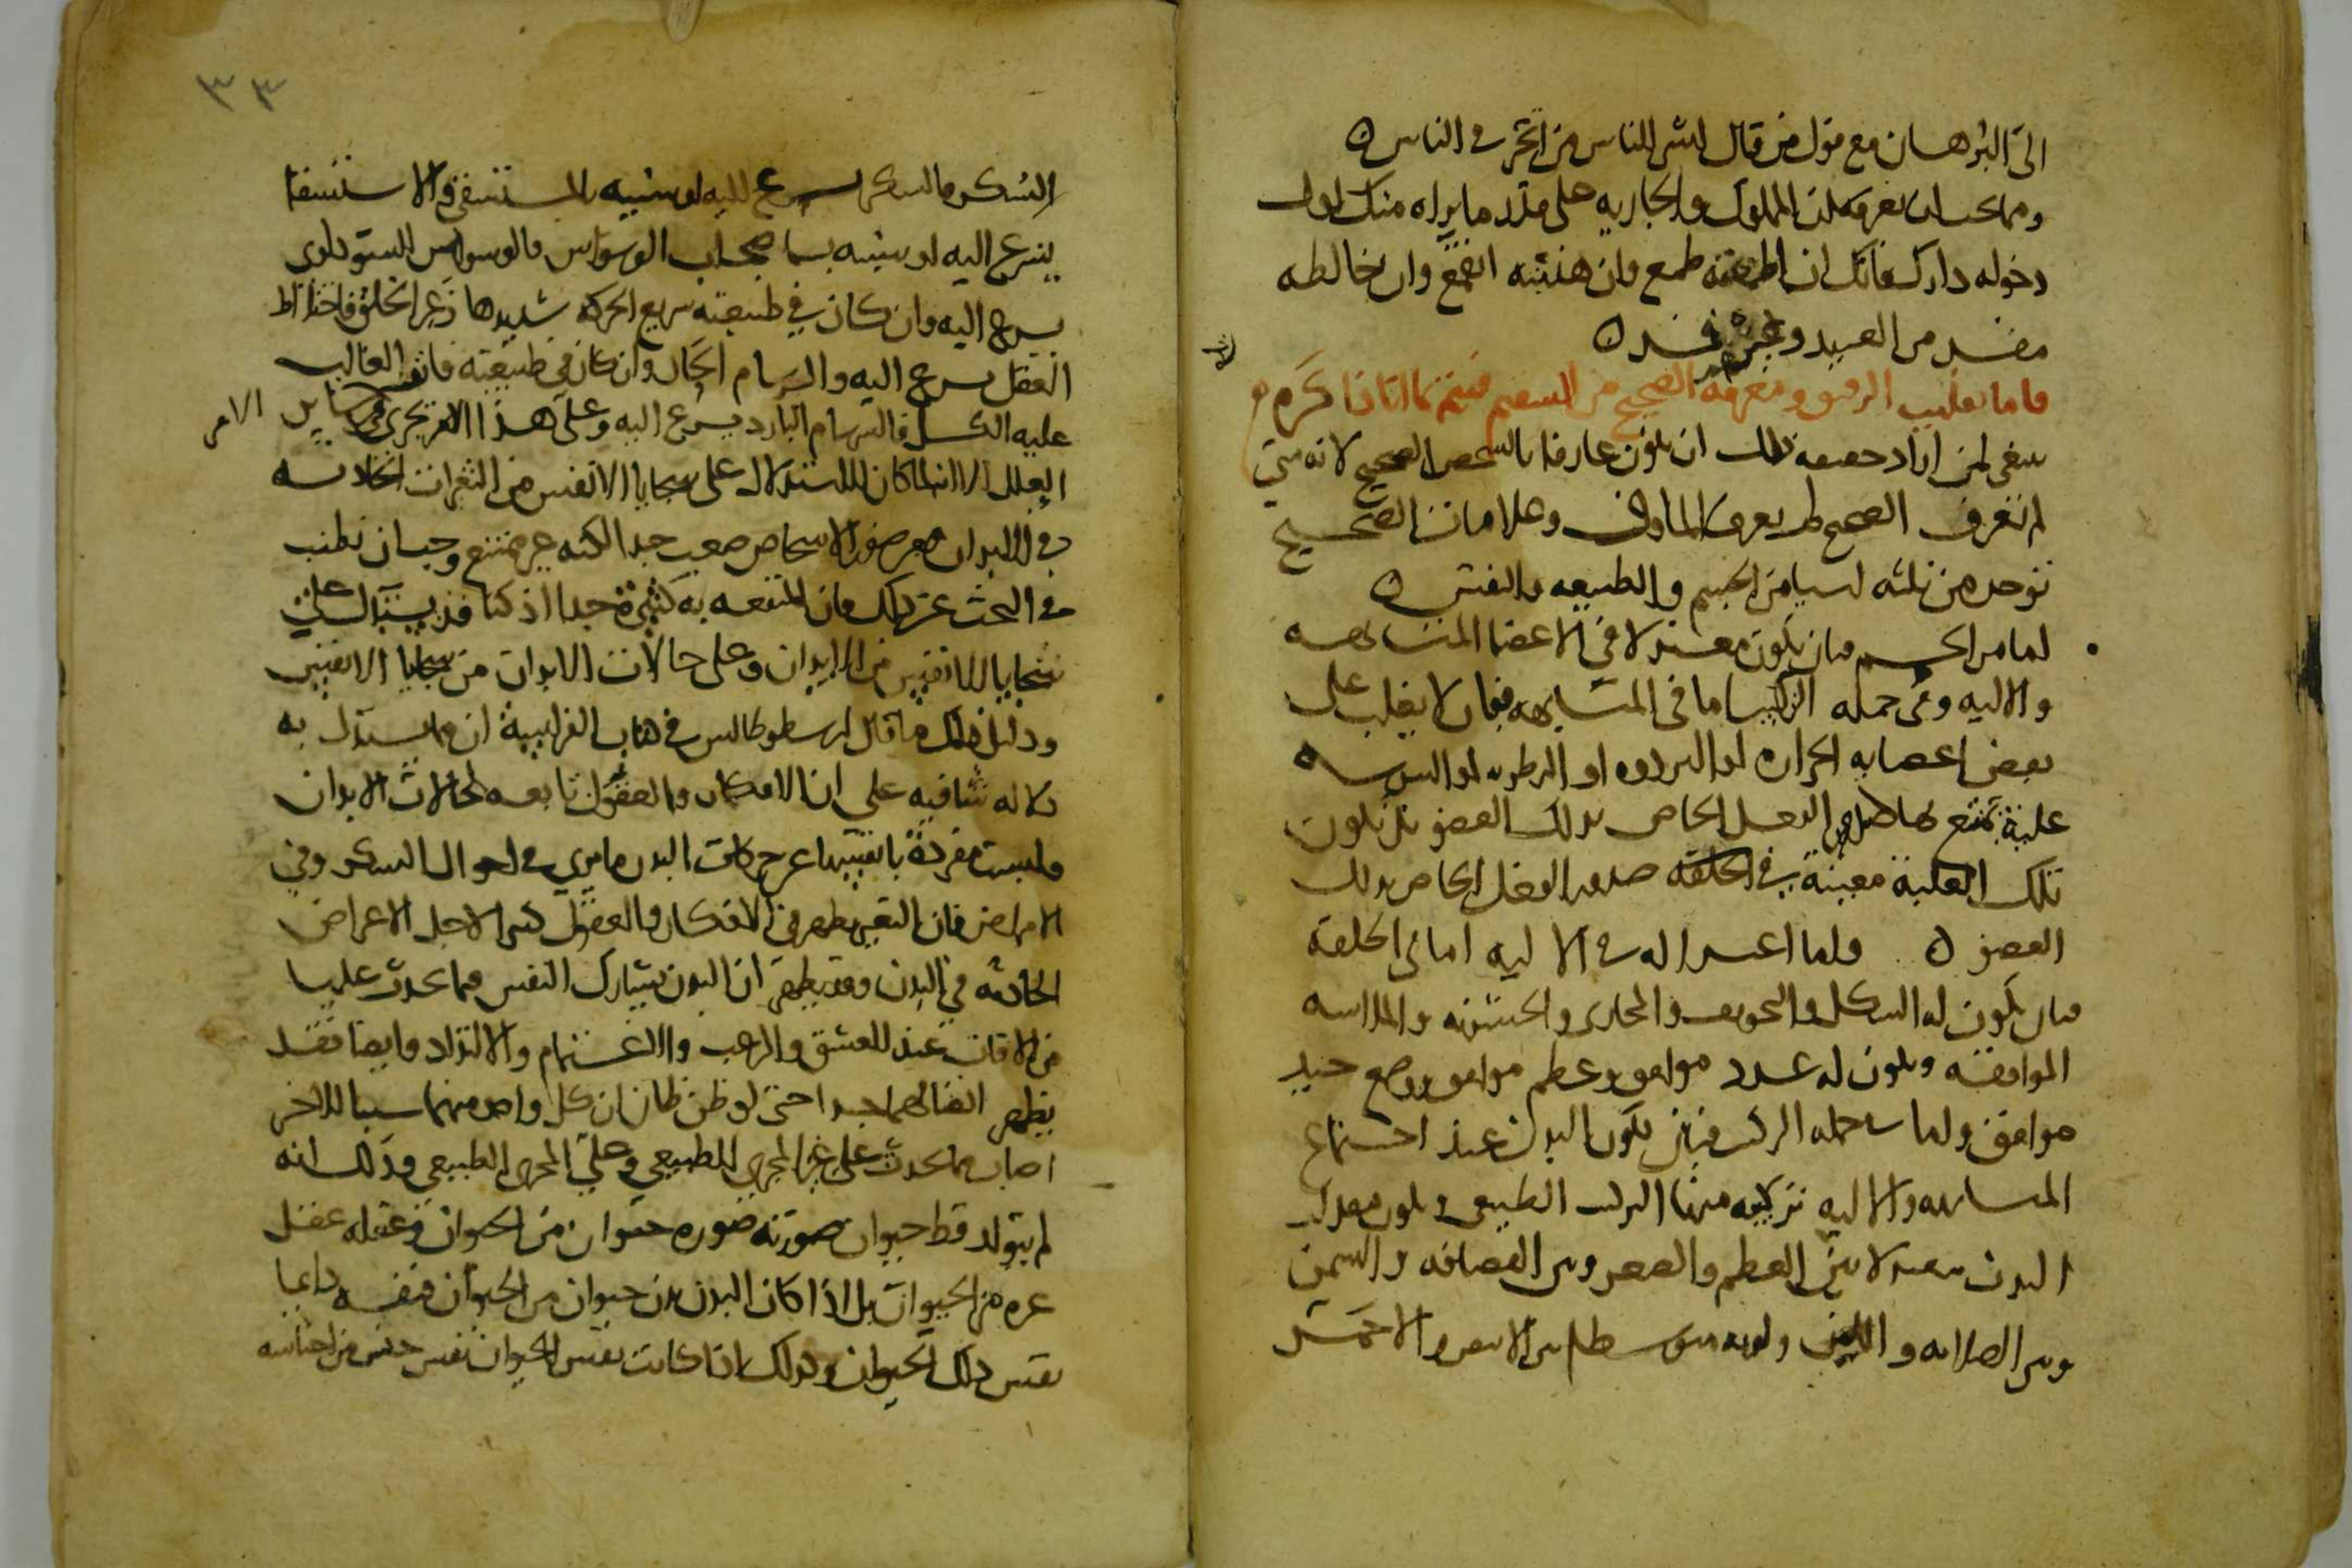 الى البرهان مع قول من قال ليس للناس من اتجر في الناس ه
ومما يجب ان تعرفه ان المملوك والجاريه على قدر ما يراه منك اول
دخوله دارك فانك ان اطمعته طمع وان هنته انقمع وان خالطه
مفسد من العبيد وغيرهم فسد ه
فاما تقليب الرقيق ومعرفة الصحيح من السقيم
ينبغي لمن اراد حقيقة ذلك ان يكون عارفا بالشخص الصحيح لانه متى
لم تعرف الصحيح لم يعرف الماووف وعلامات الصحيح
توخذ من ثلثه اشيا من الجسم والطبيعه والنفس ه
اما من الجسم فبان يكون معتدلا في الاعضا المتشابهه
والاليه وفي جمله التركيب اما في المتشابهه فبان لا يغلب على
بعض اعضايه الحراره او البروده او الرطوبه او اليبوسه
غلبة تمنع بها صدور الفعل الخاص بذلك العضو بل تكون
تلك الغلبة معينة في الخلقه صدور الفعل الخاص بذلك
العضو ه واما اعتداله في الاليه اما في الخلقة
فبان يكون له الشكل والتجويف والمجارى والخشونه والملاسه
الموافقه ويكون له عدد موافق وعظم موافق ووضع جيد
موافق واما في جمله التركيب فبان يكون البدن عند اجتماع
المتشابهه والاليه تركيبه منها التركيب الطبيعي ويكون معدل
البدن معتدلا بين العظم والصغر وبين القضافه والسمن
وبين الصلابه واللين ولونه متوسطا بين الابيض والاحمر
السكر فالسكر يسرع اليه او شبيه بالمستسقي فالاستسقا
يسرع اليه او شبيه بسحاب اصحاب الوسواس فالوسواس السوداوى
يسرع اليه وان كان في طبيعته سريع الحركه شديدها زعر الخلق فاختلاط
العقل يسرع اليه والبرسام الحار وان كان في طبيعته فاتر الغالب
عليه الكسل فالبرسام البارد يسرع اليه وعلى هذا يجرى في ساير الامر
العلل الا انه لما كان الاستدلال على سجايا الانفس من التغيرات الحادثه
في الابدان صعب جدا لكنه غير ممتنع وجب ان نطنب
في البحث عن ذلك فان المنفعه به كثيرة جدا اذ كنا قد نستدل على
سجايا الانفس من الابدان وعلى حالات الابدان من سجايا الانفس
ودليل ذلك ما قال ارسطوطالس في كتاب الفراسة ان مما يستدل به
دلاله شافيه على ان الافكار والعقول تابعه لحالات الابدان
وليست مفردة بانفسها عن حركات البدن ما يرى في احوال السكر وفي
الامراض فان التغير يظهر في الافكار والعقول كثيرا لاجل الاعراض
الحادثه في البدن وقد يظهر ان البدن يشارك النفس فيما يحدث عليها
من الافات عند العشق والرعب والاغتمام والالتذاذ وايضا فقد
يظهر اتصالهما جدا حتى لو ظن ظان ان كل واحد منهما سببا للاخر
اصاب مما يحدث على غير المجرى الطبيعي وعلى المجرى الطبيعي وذلك انه
لم يتولد قط حيوان صورته صوره حيوان من الحيوان وعقله عقل
غيره من الحيوان بل اذا كان البدن بدن حيوان من الحيوان فنفسه دايما
نفس ذلك الحيوان وكذلك اذا كانت نفس الحيوان نفس جنس من اجناسه
٣٣